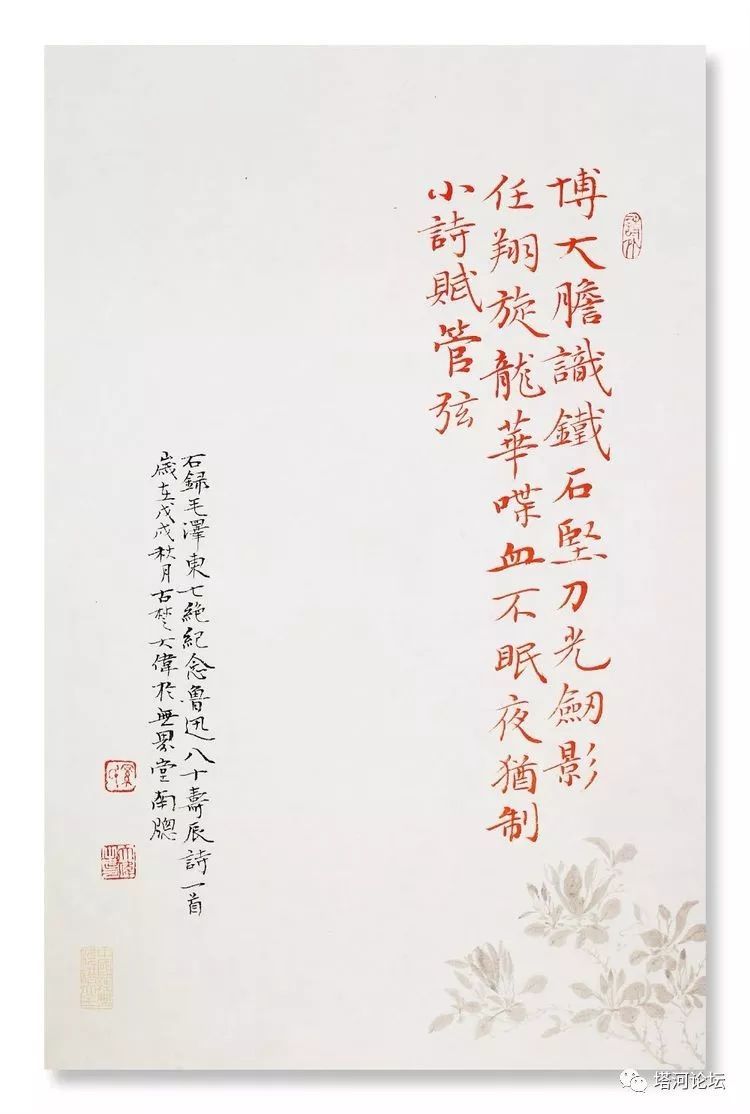 博大膽識鐵石堅刀光劍影
任翔旋龍華喋血不眠夜猶制
小詩賦管弦
石録毛澤東七絕紀念魯迅八十壽辰詩一首
歲在戊戌秋月古楚大偉於無界堂南牕
塔河论坛